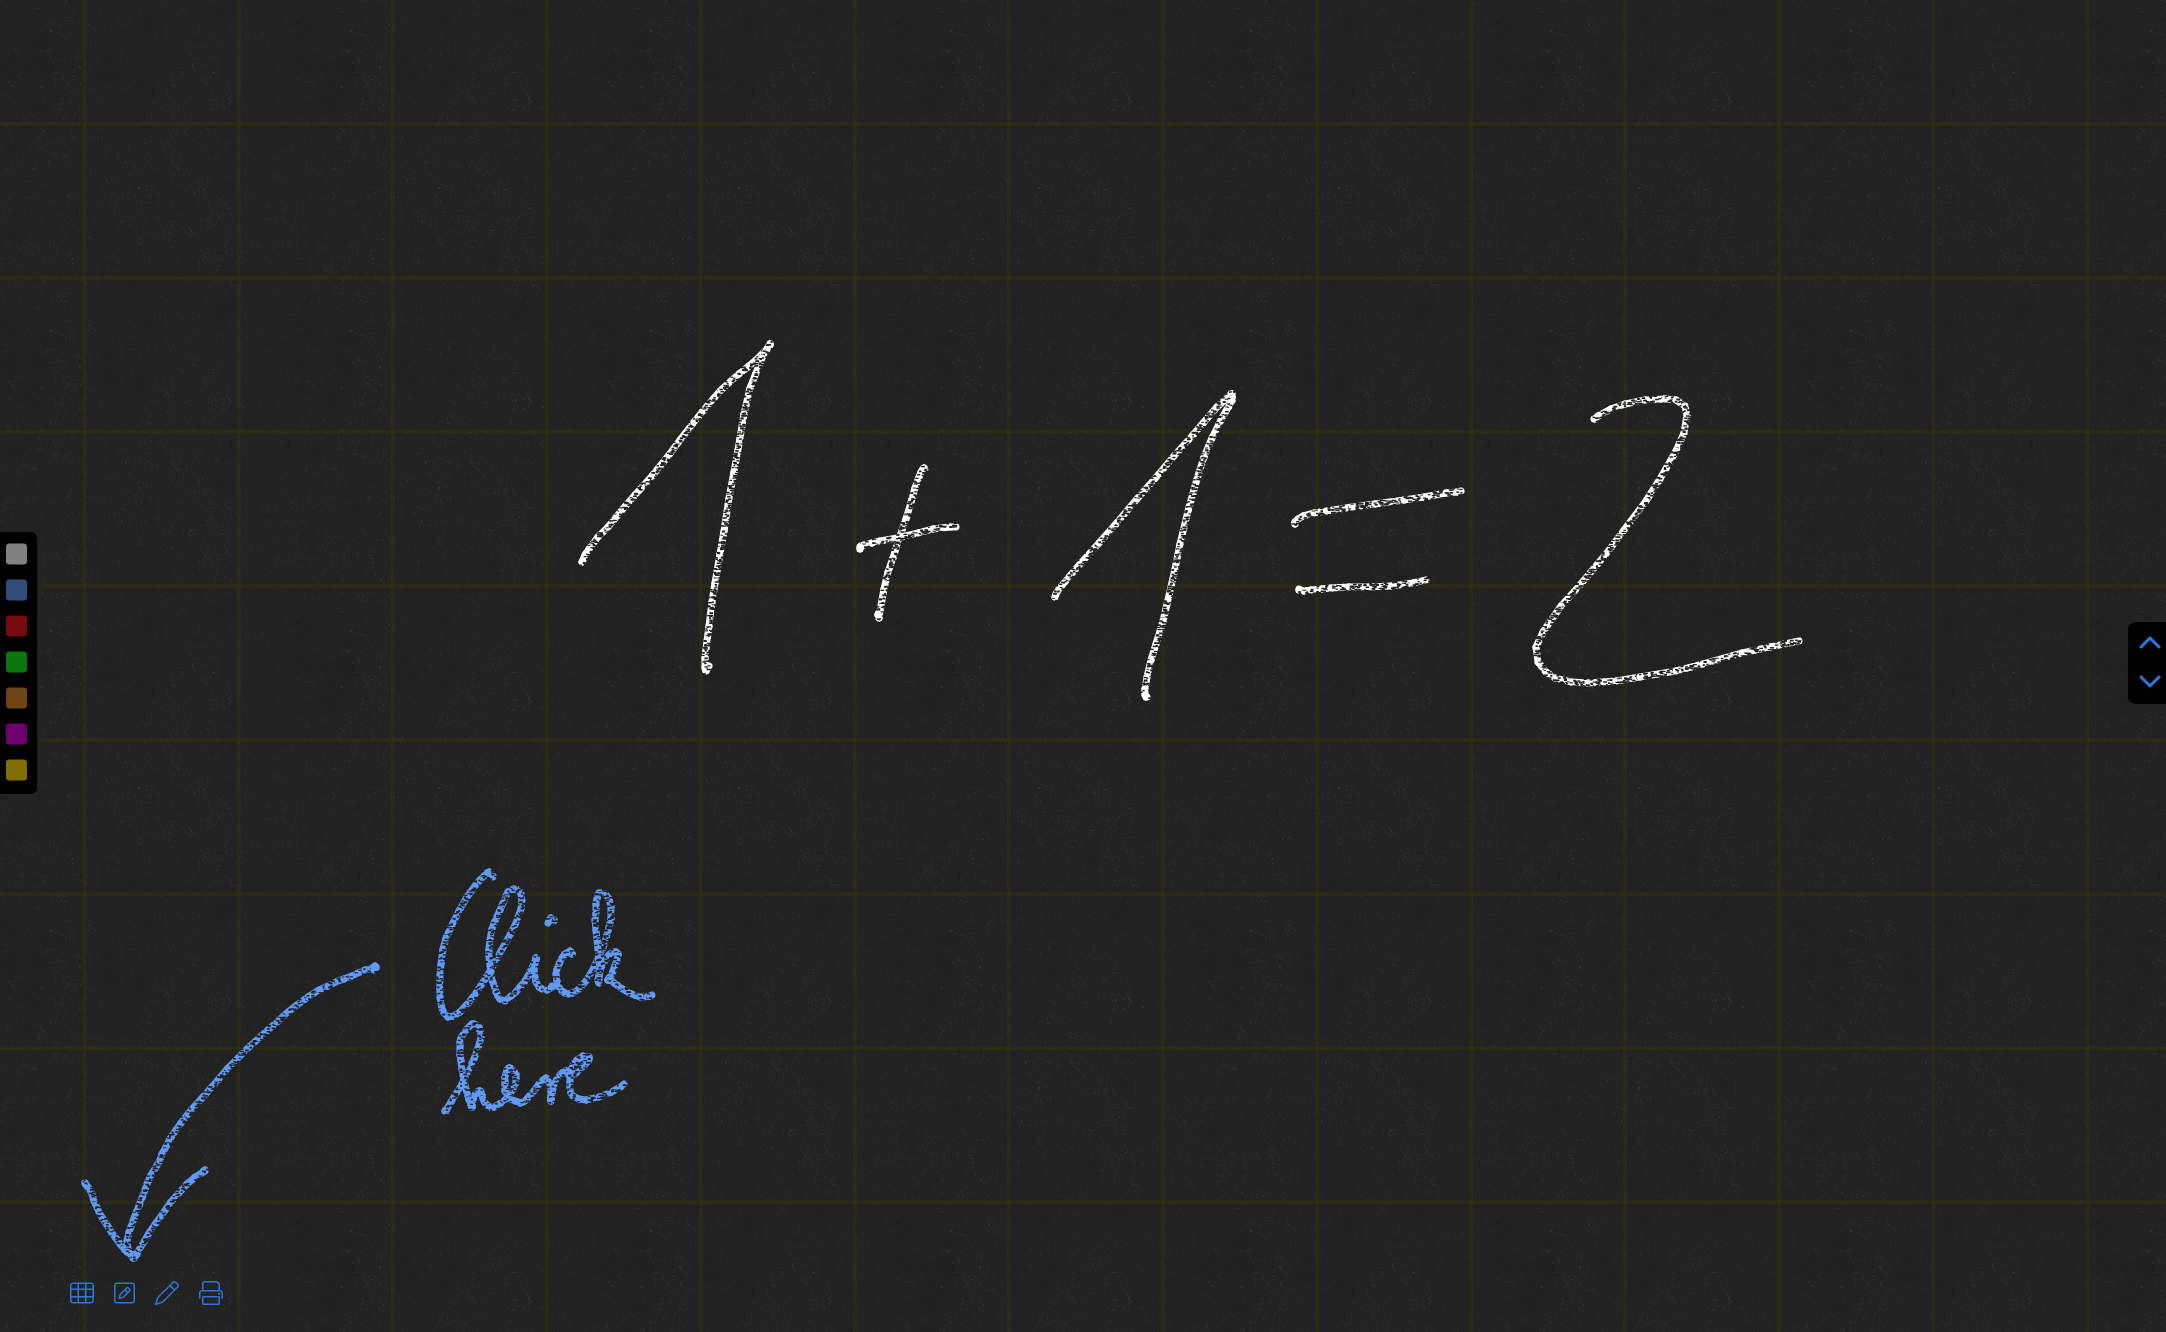 1 + 1 = 2
Click
here